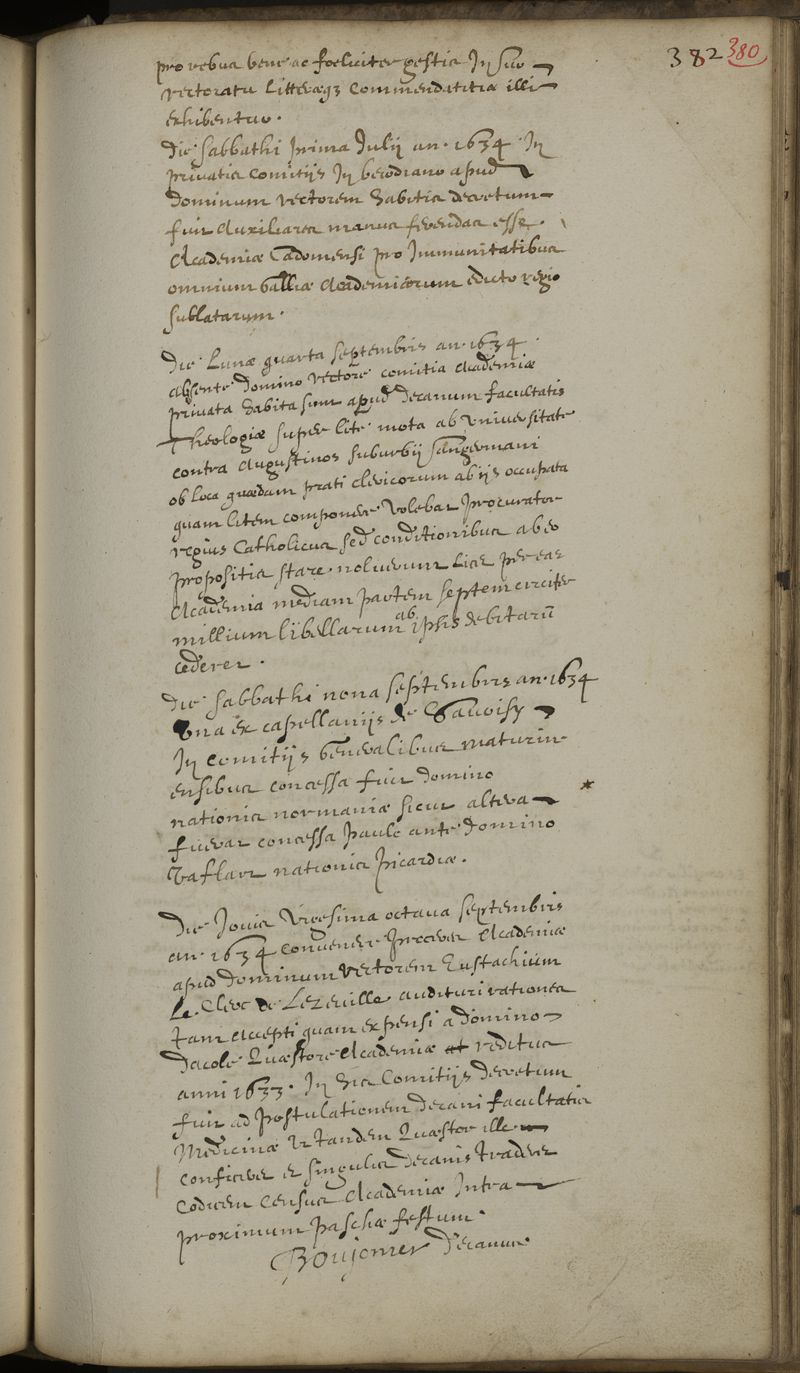 382 380
pro rebus bene ac foeliciter gestis In suo
rectoratu litteraeq3 Commendatitiae illi
exhibentur.
Die Sabbathi prima Julij an. 1634 In
privatis Comitijs In becodiano apud
dominum rectorem habitis decretum
fuit Auxiliares manus ferendas esse
Academiae Cadomensi pro Immunitatibus
omnium Galliae Academiarum edicto regio
sublatarum.
Die Lunae quarta septembris an. 1634.
absente domino rectore comitia Academiae
privata habita sunt apud Decanum facultatis
Theologiae super lite mota ab Universitate
contra Augustinos suburbij sangermani
ob loca quaedam prati clericorum ab ijs occupata
quam litem componere volebat procurator
regius Catholicus sed conditionibus ab eo
propositis stare noluerunt licet per eas
Academia mediam partem septem circiter
millium libellarum ab ipsis debitarū
cederet.
Die Sabbathi nona septembris an. 1634
Una ex capellanijs de Savoisy
In comitijs Generalibus maturin
ensibus concessa fuit domino
nationis normaniae sicut altera
fuerat concessa paulo ante domino
nationis picardiae.
Die Jovis vicesima octava septembris
an. 1634 convenere proceres Academiae
apud dominum rectorem Eustachium
le Clerc de Lezeville audituri rationes
tam accepti quam expensi a domino
Dacole Quaestore Academiae at reditus
anni 1633. In his Comitijs decretum
fuit ad postulationem decani facultatis
Medicinae ut tandem Quaestor ille
conficeret et singulis decanis traderet
codicem census Academiae Intra
proximum paschae festum.
Boujonier decanus.